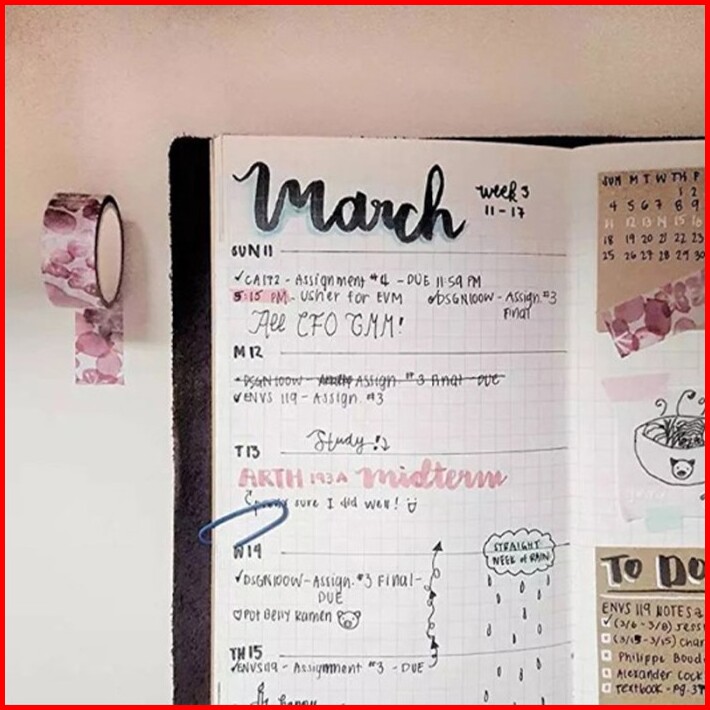 March
week 3
11-17
SUN 11
✓CA172 - Assignment #4 - DUE 11:59 PM
5:15 PM - Usher for EVM
DSGN100W - Assign. #3
Final
All CFO GMM!
M 12
DSGN100W - Assign. #3 Final - DUE
✓ENVS 119 - Assign. #3
T 13
Study!
ARTH 193A midterm
sure I did well!
W 14
✓DSGN100W - Assign. #3 Final -
DUE
Pot Belly Ramen
STRAIGHT
WEEK OF RAIN
TH 15
✓ENVS119 - Assignment #3 - DUE
happy
SUN M T W TH F
1 2
4 5 6 7 8 9
11 12 13 14 15 16
18 19 20 21 22 23
25 26 27 28 29 30
TO DO
ENVS 119 NOTES
✓ (3/6 - 3/8)
(3/13 - 3/15)
Philippe
Alexander
Textbook - pg. 37